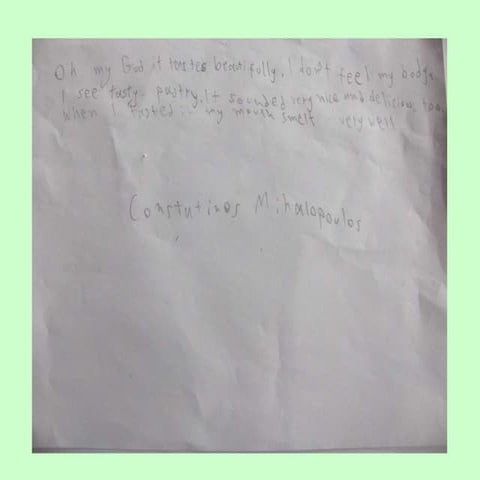 Oh my God it tastes beautifully, I don't feel my body.
I see tasty pastry. It sounded very nice and delicious too.
When I tasted it my mouth smelt very well
Constutinos Mihalopoulos